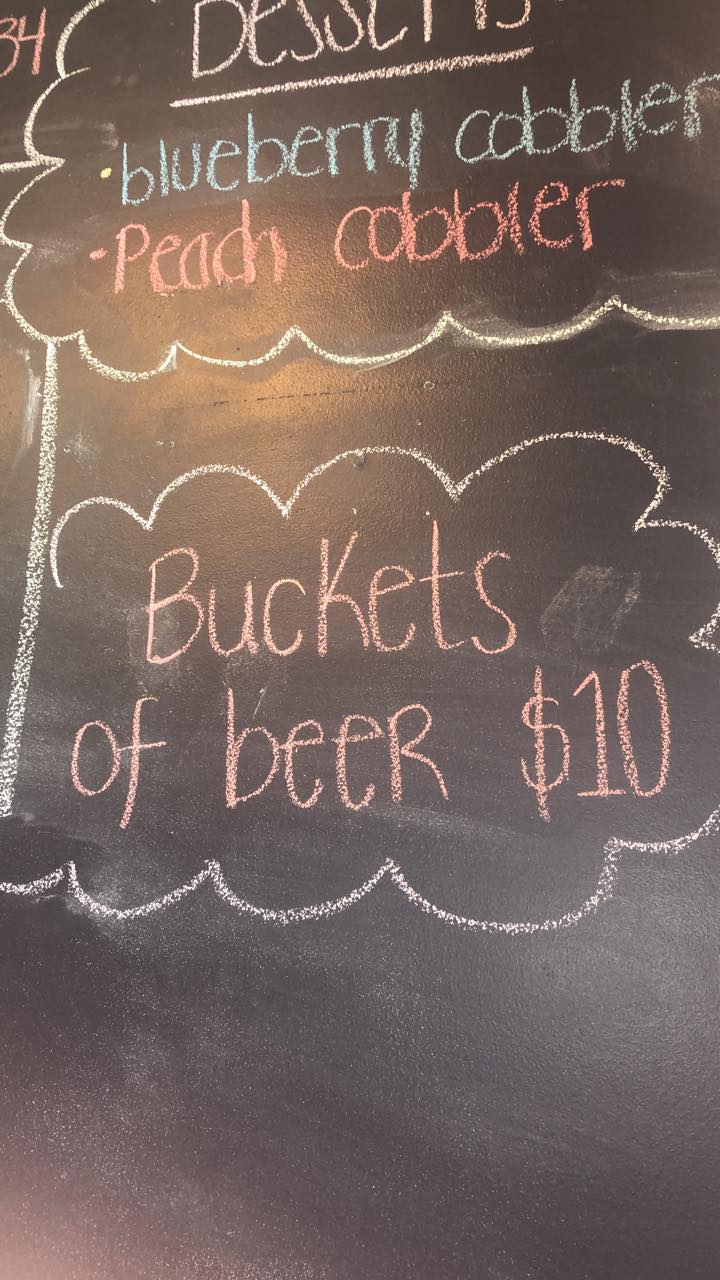 34
DESSERTS
·blueberry cobbler
·Peach cobbler
Buckets
of beer $10